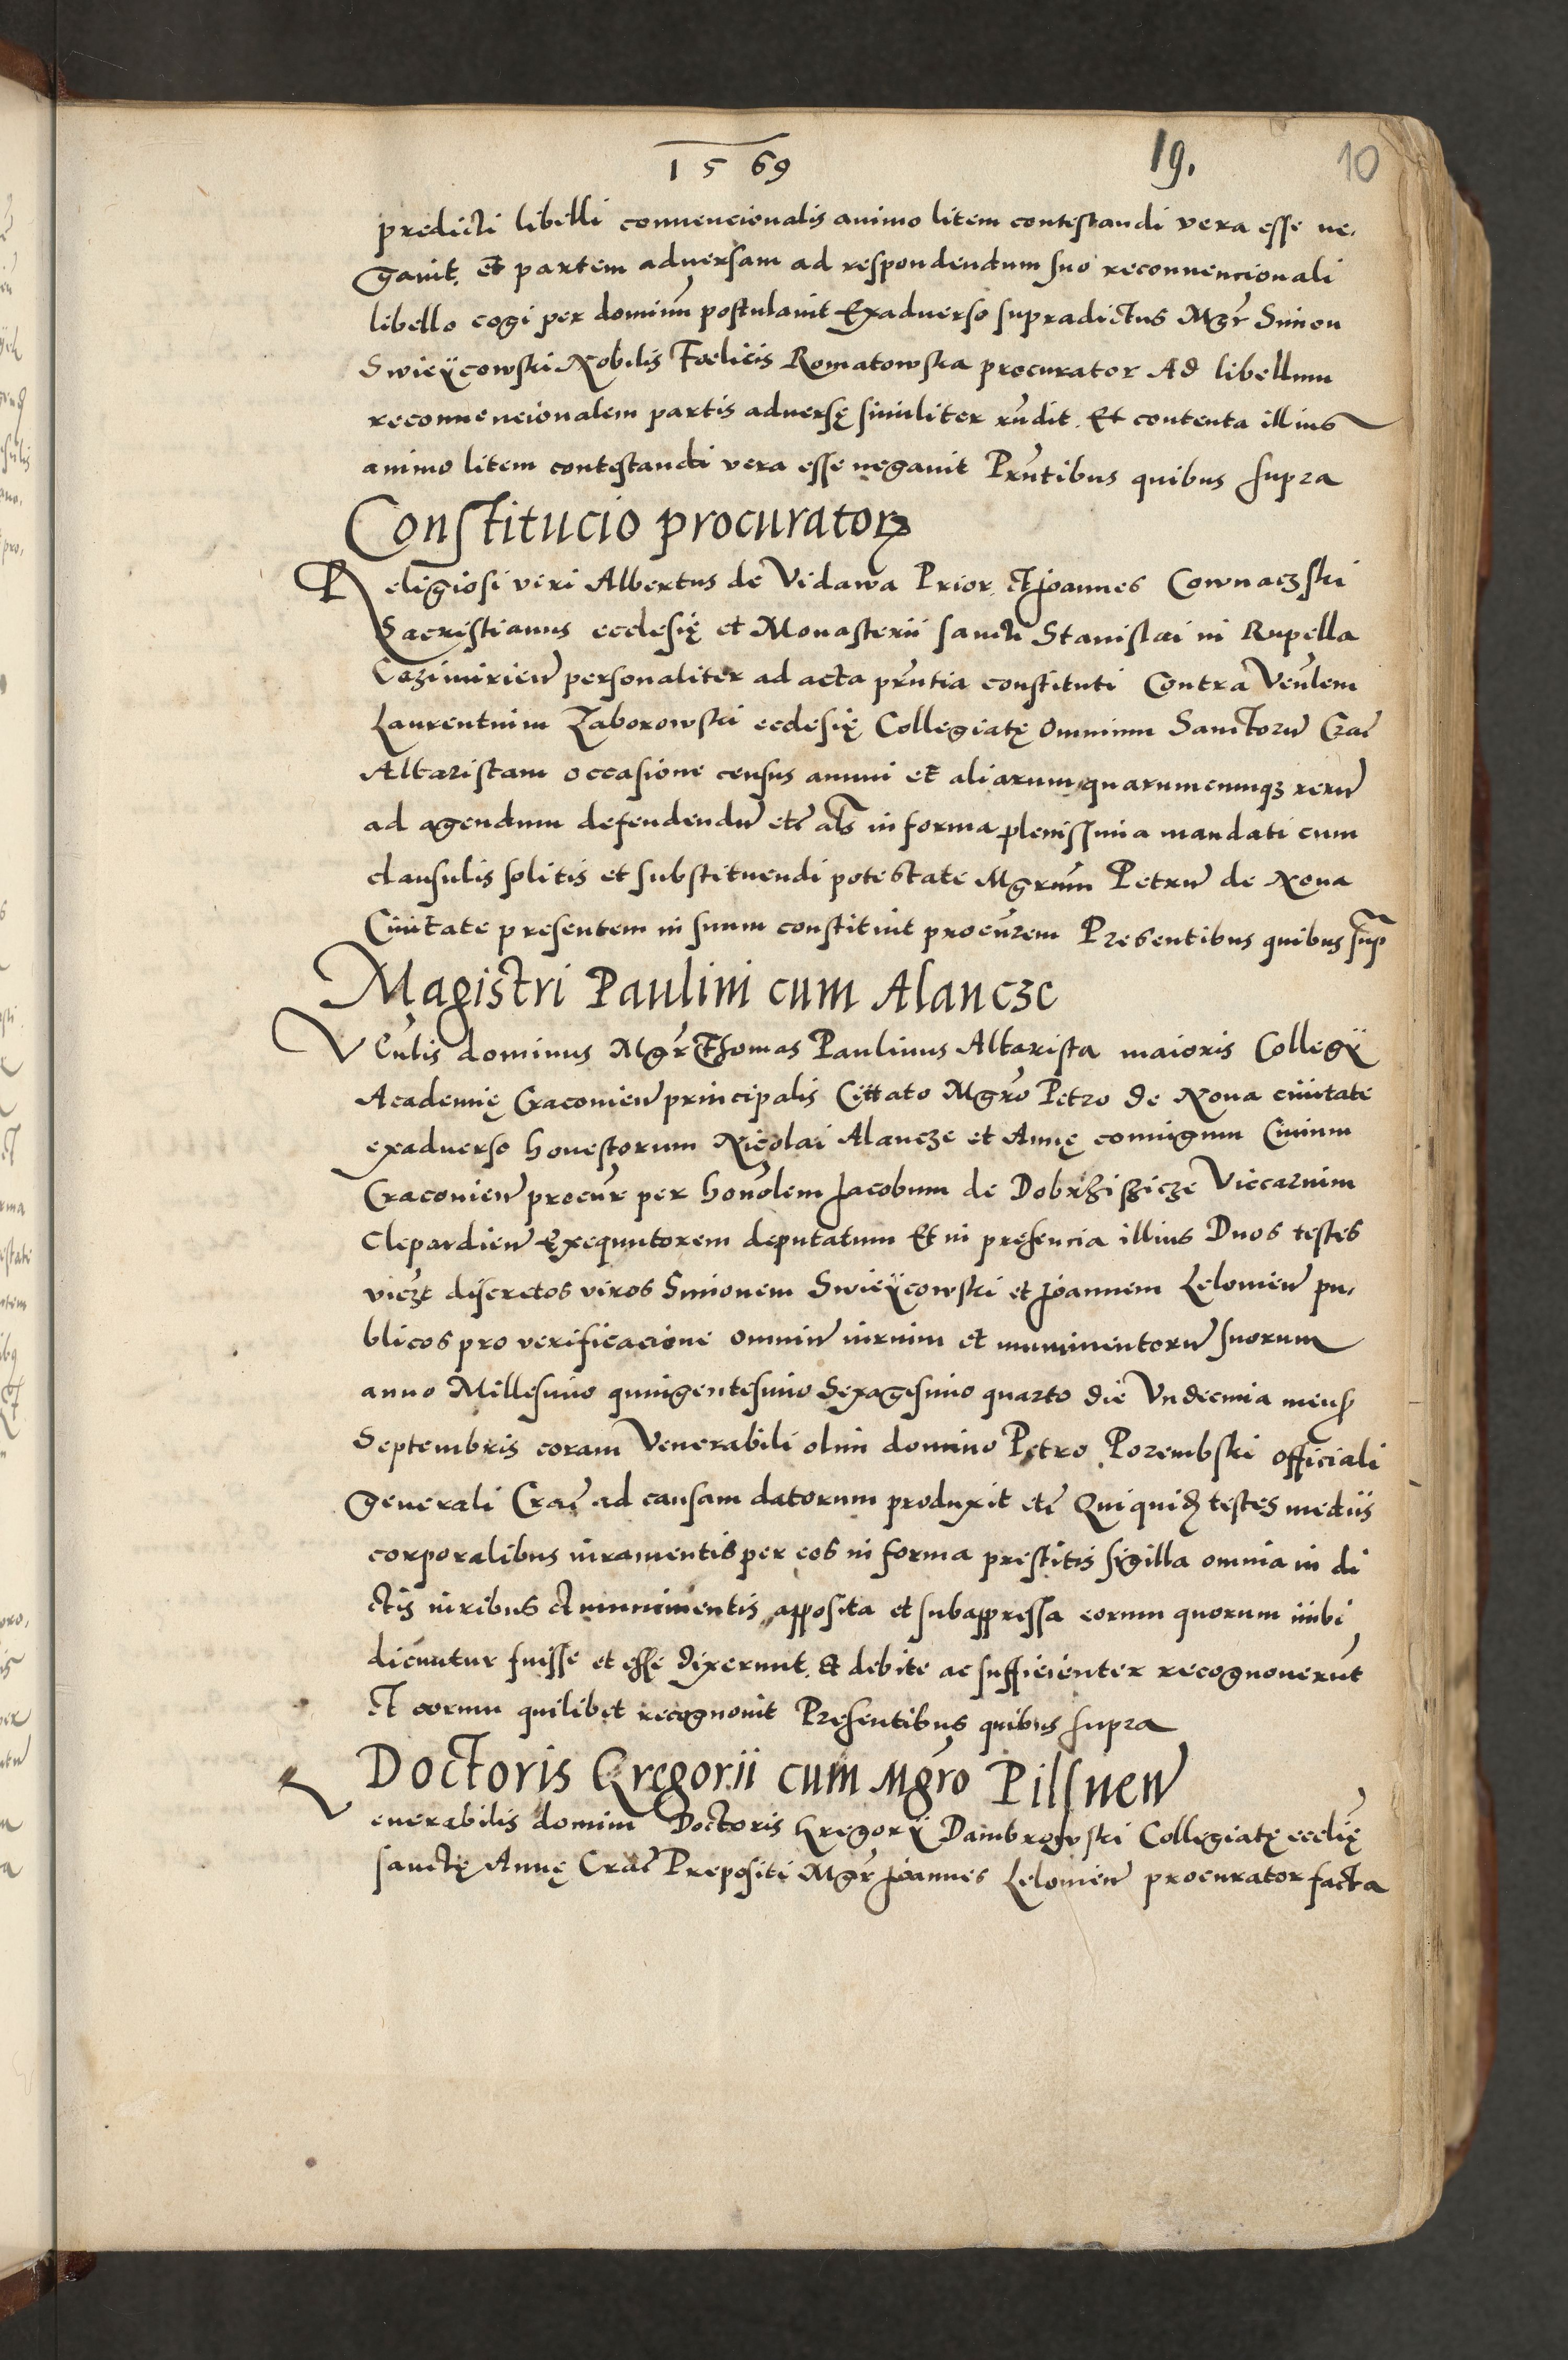 1569 19. 10
predicti libelli convencionalis animo litem contestandi vera esse ne,
gavit. et partem adversam ad respondendum suo reconvencionali
libello cogi per dominũ postulavit Exadverso supradictus Mgr̃ Simon
Swieÿcowski Nobilis Foelicis Romatowska procurator Ad libellum
reconvencionalem partis adversę similiter rñdit. Et contenta illius
animo litem contestandi vera esse negavit Prñtibus quibus supra
Constitucio procuratorꝝ
Religiosi viri Albertus de Vidawa Prior. et Joannes Cownaczski
Sacristianus ecclesię et Monasterii sancti Stanislai in Rupella
Cazimirieñ personaliter ad acta prñtia constituti Contra Veñlem
Laurentium Zaborowski ecclesię Collegiatę Omnium Sanctorũ Crac̃
Altaristam occasione census annui et aliarum quarumcumqꝫ rerũ
ad agendum defendendũ etc̃ als̃ in forma plenissima mandati cum
clausulis solitis et substituendi potestate Mgrũm Petrũ de Nova
Civitate presentem in suum constituit procũrem Presentibus quibus sup̃
Magistri Paulini cum Alancze
Veñlis dominus Mgr̃ Thomas Paulinus Altarista maioris Collegÿ
Academię Cracovieñ principalis Cittato Mgrõ Petro de Nova civitate
exadverso honestorum Nicolai Alancze et Annę coniugum Civium
Cracovieñ procũr per honõlem Jacobum de Dobrziszicze Viccarium
Clepardieñ Exequutorem deputatum Et in presencia illius Duos testes
viczt discretos viros Simonem Swieÿcowski et Joannem Lelovieñ pu,
blicos pro verificacione omniũ iurium et munimentorũ suorum
anno Millesimo quingentesimo Sexagesimo quarto die Undecima mens̃
Septembris coram Venerabili olim domino Petro Porembski officiali
generali Crac̃ ad causam datorum produxit etc̃ Qui quid̃ testes mediis
corporalibus iuramentis per eos in forma prestitis sigilla omnia in di
ctis iuribus et munimentis apposita et subappressa eorum quorum inibi
dicuntur fuisse et esse dixerunt. Et debite ac sufficienter recognoverũt
Et eorum quilibet recognovit Presentibus quibus supra
Doctoris Gregorii cum Mgrõ Pilsneñ
Venerabilis domini Doctoris Gregorÿ Dambrowski Collegiatę ecclię
sanctę Annę Crac̃ Prepositi Mgr̃ Joannes Lelovieñ procurator facta